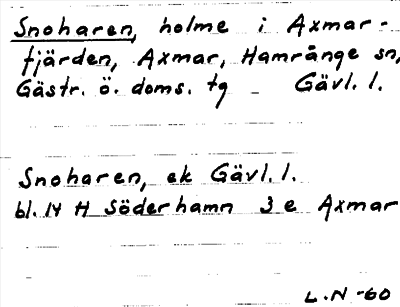 Snoharen, holme i Axmar-
fjärden, Axmar, Hamrånge sn,
Gästr. ö. doms. tg – Gävl. l.
Snoharen, ek Gävl. l.
bl. 14 H Söderhamn 3 e Axmar
L.N -60